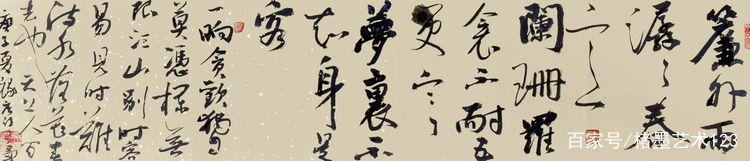 簾外雨
潺々春
意
闌珊羅
衾不耐五
更寒
夢裏不
知身是
客
一晌貪歡獨自
莫憑欄無
限江山別時容
易見時難
流水落花春
去也天上人間
庚子夏
百家号/楮墨艺术123